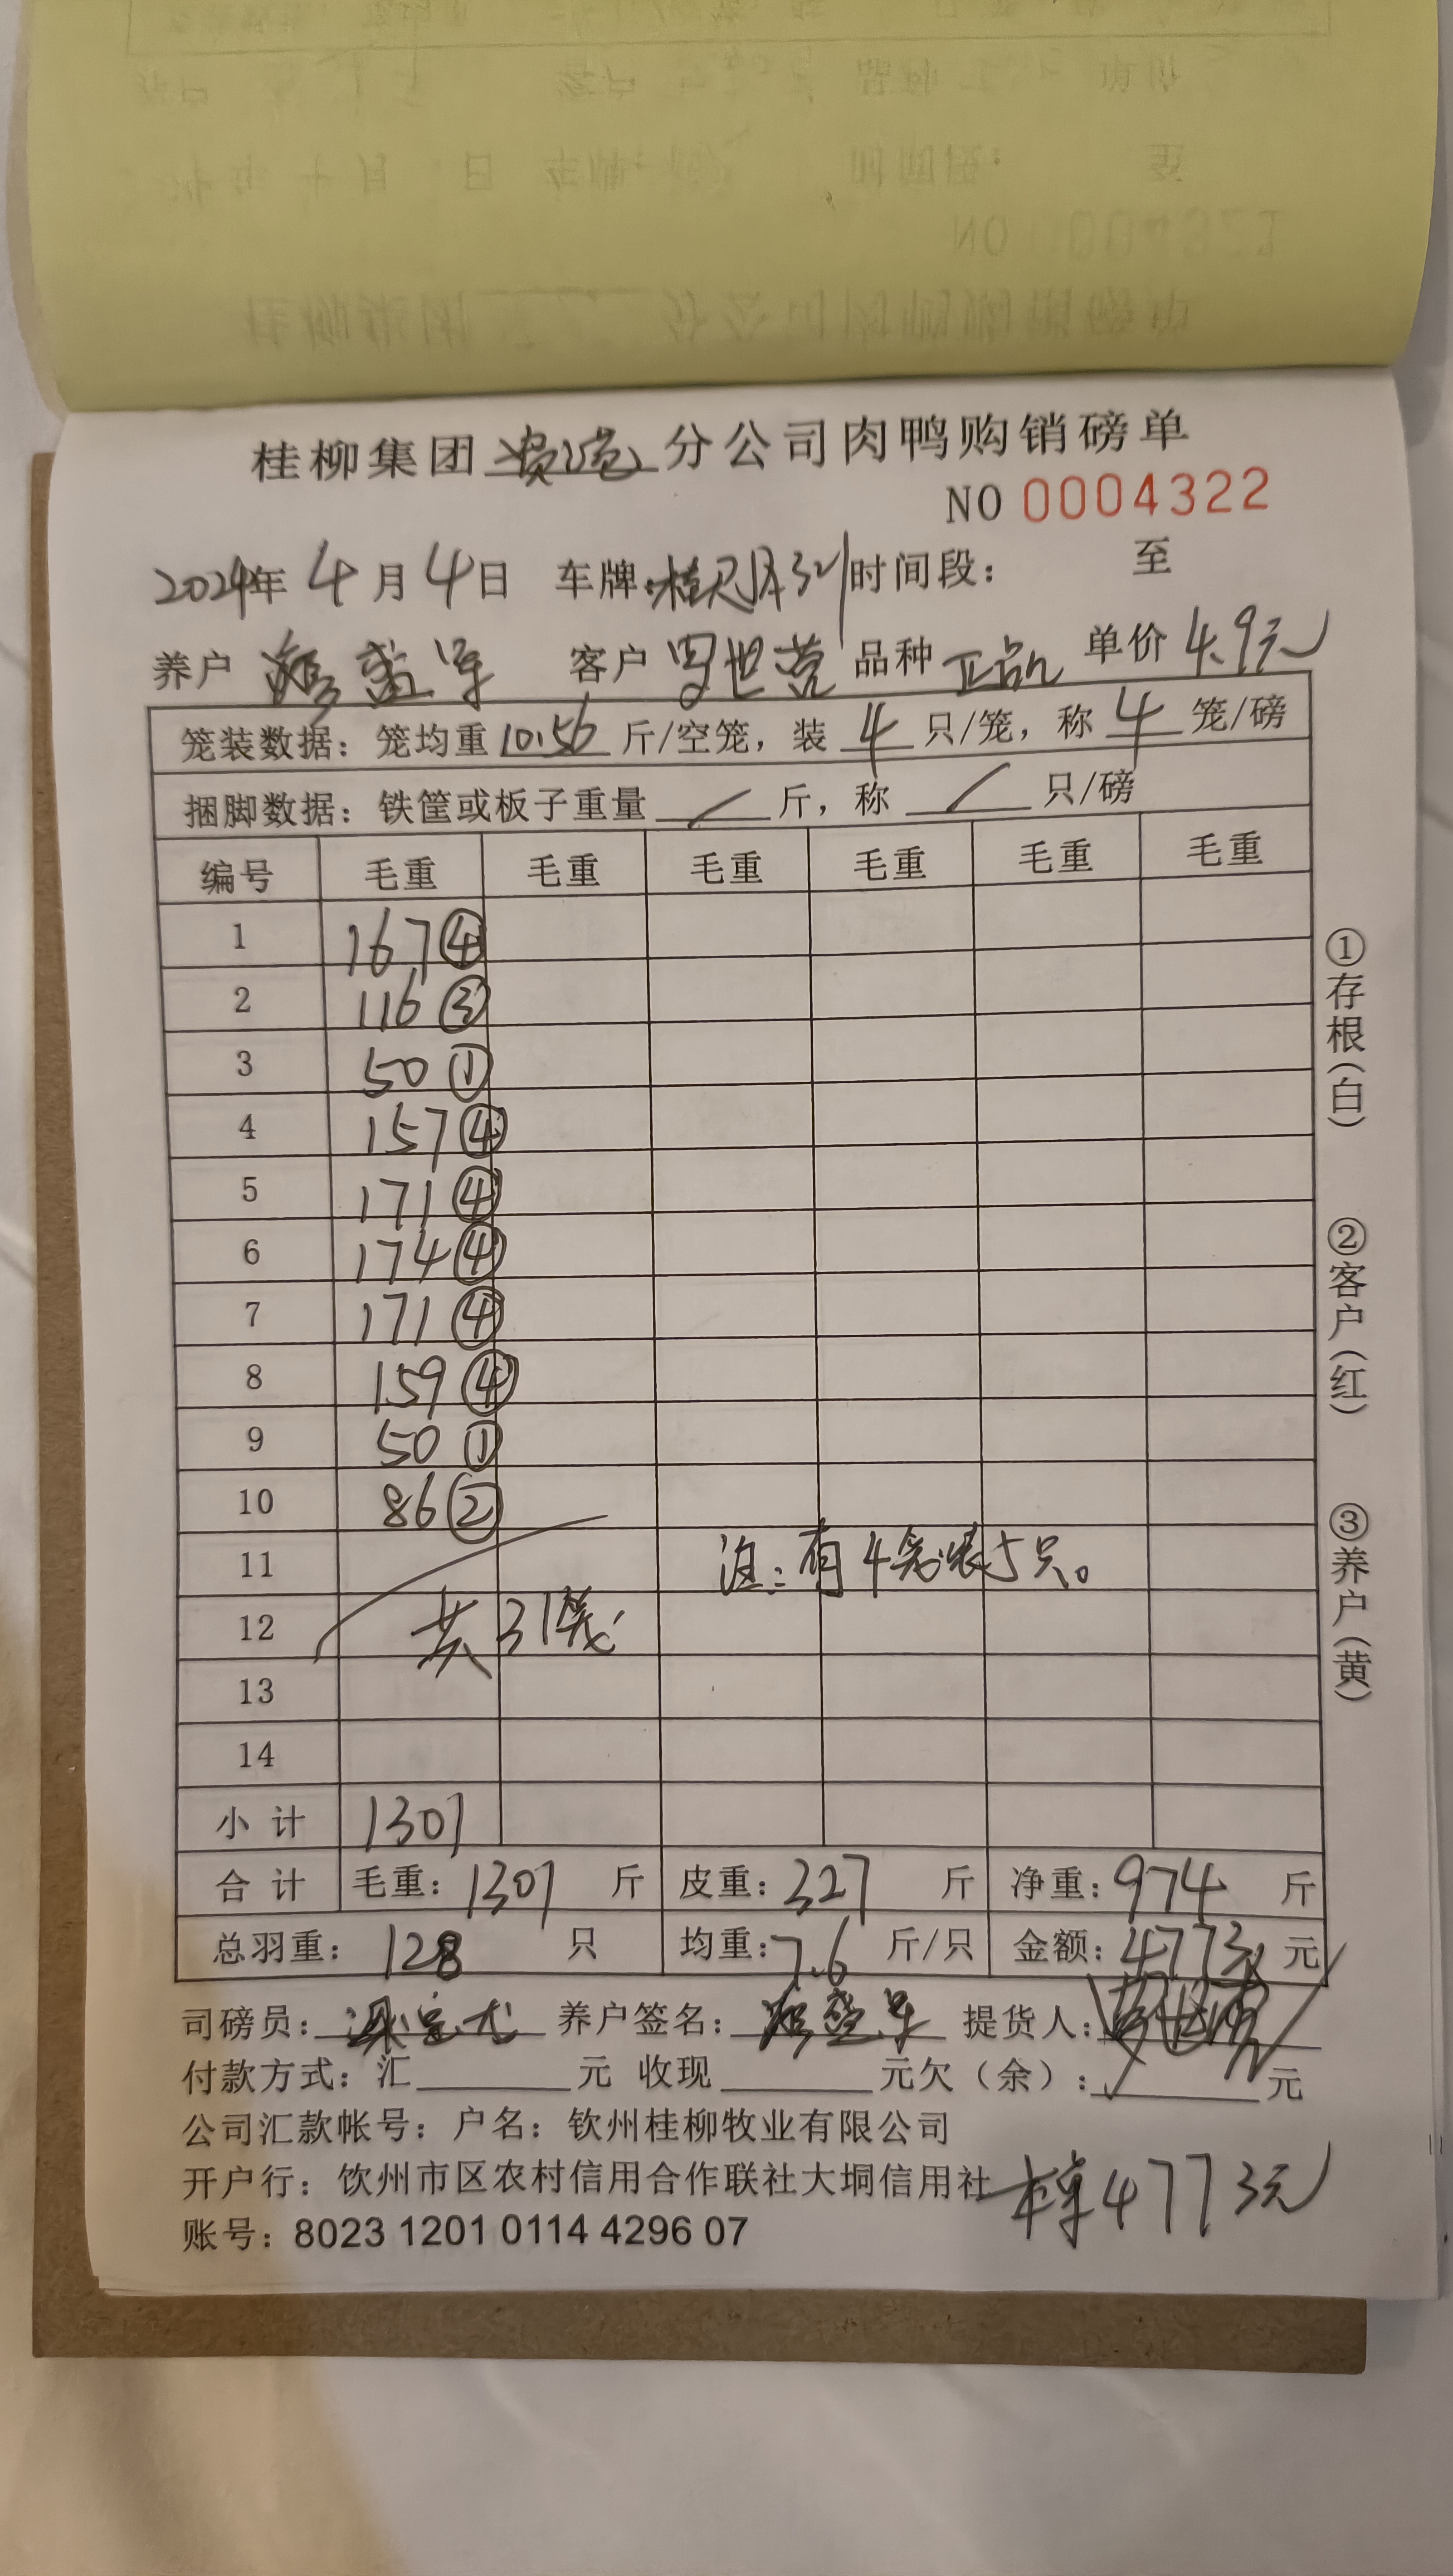 桂柳集团 分公司肉鸭购销磅单
NO 0004322
2024年 4月 4日 车牌: 时间段: 至
养户 客户 罗世营 品种 正品 单价 4.9元
笼装数据: 笼均重 10.56 斤/空笼, 装 4 只/笼, 称 4 笼/磅
捆脚数据: 铁筐或板子重量 / 斤, 称 / 只/磅
编号 毛重 毛重 毛重 毛重 毛重 毛重
1 167 ④
2 116 ③
3 50 ①
4 157 ④
5 171 ④
6 174 ④
7 171 ④
8 159 ④
9 50 ①
10 86 ②
11 注: 有4笼装5只。
12 共31笼
13
14
小计 1301
合计 毛重: 1301 斤 皮重: 327 斤 净重: 974 斤
总羽重: 128 只 均重: 7.6 斤/只 金额: 4773 元
司磅员: 养户签名: 提货人:
付款方式: 汇 元 收现 元欠(余): 元
公司汇款帐号: 户名: 钦州桂柳牧业有限公司
开户行: 钦州市区农村信用合作联社大垌信用社
4773元
账号: 8023 1201 0114 4296 07
①存根(白)
②客户(红)
③养户(黄)